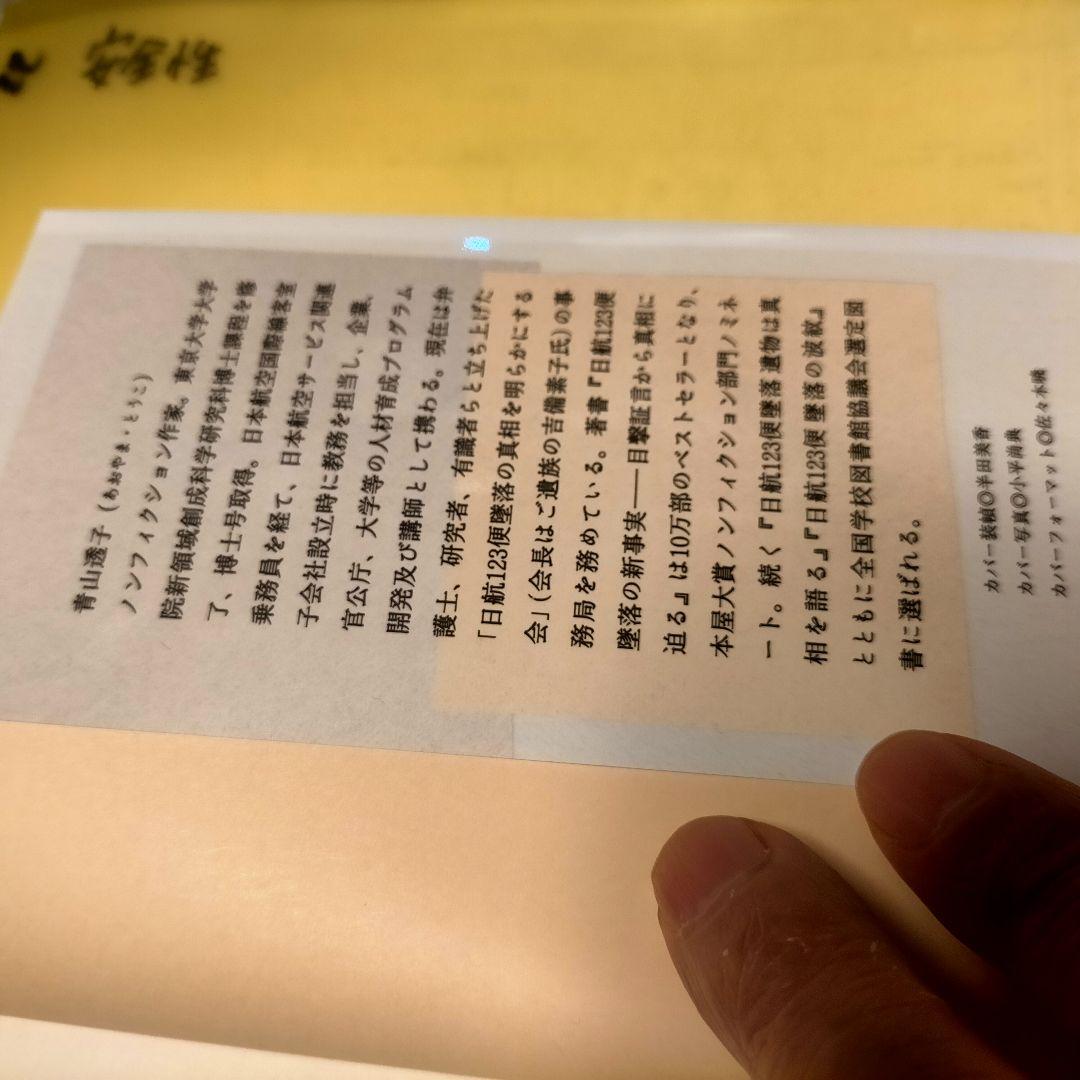 青山透子（あおやま・とうこ）
ノンフィクション作家。東京大学大学
院新領域創成科学研究科博士課程を修
了、博士号取得。日本航空国際線客室
乗務員を経て、日本航空サービス関連
子会社設立時に教務を担当し、企業、
官公庁、大学等の人材育成プログラム
開発及び講師として携わる。現在は弁
護士、研究者、有識者らと立ち上げた
「日航123便墜落の真相を明らかにする
会」（会長はご遺族の吉備素子氏）の事
務局を務めている。著書『日航123便
墜落の新事実――目撃証言から真相に
迫る』は10万部のベストセラーとなり、
本屋大賞ノンフィクション部門ノミネ
ート。続く『日航123便墜落遺物は真
相を語る』『日航123便墜落の波紋』
とともに全国学校図書館協議会選定図
書に選ばれる。
カバー装幀◎半田美香
カバー写真◎小平尚典
カバーフォーマット◎佐々木暁